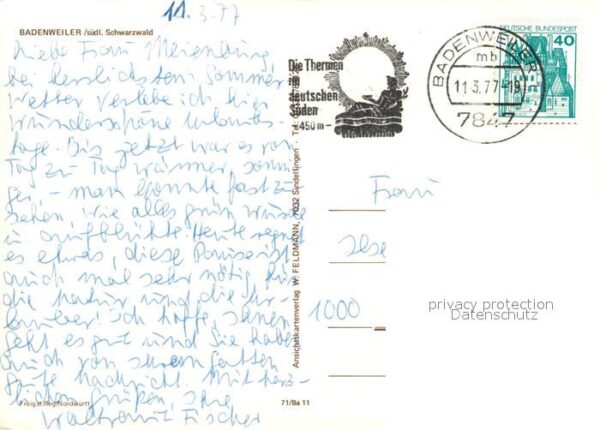 11.3.77
BADENWEILER /südl. Schwarzwald
Liebe Frau Meienburg,
bei herrlichstem Sommer
wetter verlebe ich hier
wunderschöne Urlaubs-
tage. Bis jetzt war es von
Tag zu Tag wärmer, sonni
ger – man konnte fast zu
sehen, wie alles grün wurde
u. aufblühte. Heute regnet
es etwas, diese Pause ist
auch mal sehr nötig für
die Natur und die Ur
lauber! Ich hoffe, Ihnen
geht es gut und Sie haben
auch von Ihrem Gatten
gute Nachricht. Mit herz
lichen Grüßen, Ihre
Waltraut Fischer
Die Thermen
im
deutschen
Süden
- 450 m -
BADENWEILER
mb
11.3.77-19
7847
DEUTSCHE BUNDESPOST
40
Ansichtskartenverlag W. FELDMANN, 7032 Sindelfingen
Frau
Ilse
1000
privacy protection
Datenschutz
71/Ba 11